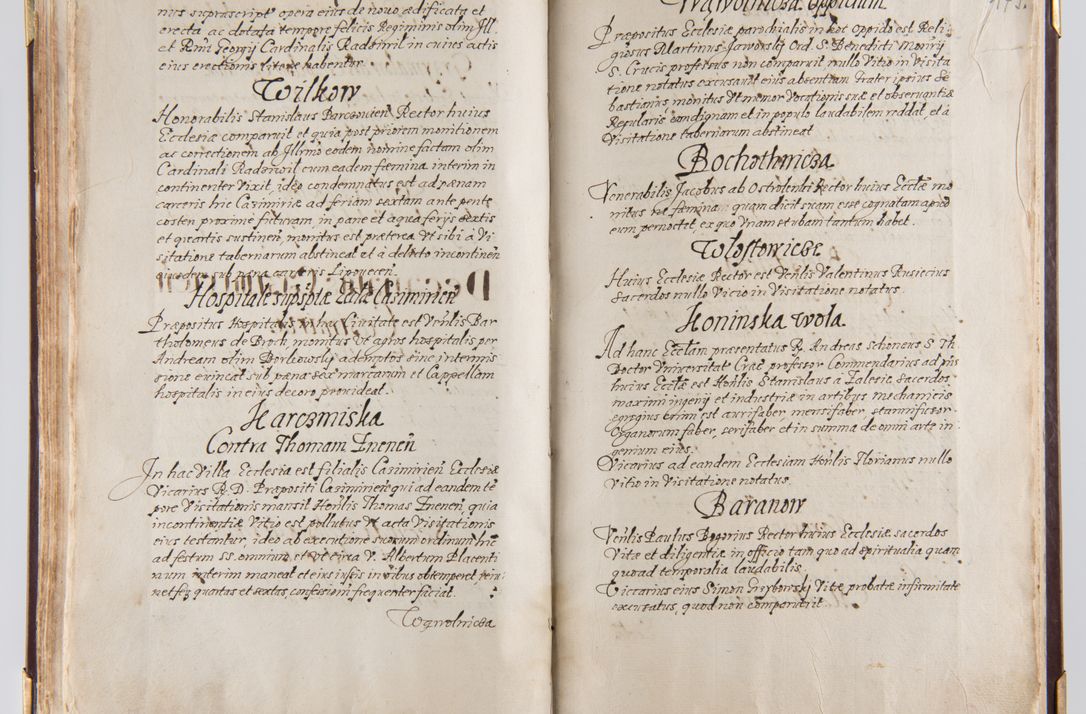 nus suprascript⁹ opera eius de novo ædificata et
erecta ac dotata tempore felicis Regiminis olim Ill.
et Rmi Georgij Cardinalis Radziwil in cuius actis
eius erectionis literæ habentur.
Wilkow
Honorabilis Stanislaus Barczouien Rector huius
Ecclesiæ comparuit et quia post priorem monitionem
ac correctionem ab Illrmo eodem nomine factam olim
Cardinali Radziwil cum eadem fæmina interim in
continenter vixit ideo condemnatus est ad pænam
carceris hic Casimiriæ ad feriam sextam ante pente
costen proxime futuram, in pane et aqua ferijs sextis
et quartis sustinen, monitus est præterea vt sibi à Vi
sitatione tabernarum abstineat et à delicto incontinen
eiusdem sub pæna carceris Lipouecen.
Hospitale supsptæ Ecclæ Casimirien
Præpositus Hospitalis in hac Ciuitate est Venlis Bar
tholomeus de Brock monitus vt agros hospitalis per
Andream olim Borkowsky ademptos sine intermis
sione euincat sub pæna sex marcarum et Cappellam
hospitalis in eius decoro prouideat.
Karczmiska
Contra Thomam Enenen
In hac Villa Ecclesia est filialis Casimirien Ecclesiæ
Vicarius R. D. Præpositi Casimirien qui ad eandem te
pore Visitationis mansit Honlis Thomas Enenen, quia
incontinentiæ Vitio est pollutus vt acta Visitationis
eius testantur, ideo ab executione suorum ordinum hic
ad festum SS. omnium et vt circa V. Albertum Placenti
num interim maneat et eius iussis in omnibus obtemperet
net feq quartas et sextas, confessioni frequenter faciat.
Wąwolnicza
Wąwolnicza Oppidum.
173.
Præpositus Ecclesiæ parochialis in hoc Oppido est Reli
giosus Martinus Jaworsky Ord. S. Benedicti Monrij
S. Crucis professus non comparuit nullo Vitio in Visita
tione notatus excusauit eius absentiam Frater ipsius Se
bastianus monitus vt memor Vocationis suæ et obseruantiæ
Regularis condignam et in populo laudabilem reddat, et à
Visitatione tabernarum abstineat
Bochothnicza
Venerabilis Jacobus ab Ostrolenki Rector huius Ecclæ mo
nitus ne fæmina quam dicit suam esse cognatam apud
eum pernoctet, ex quo vnam et vbam tantum habet.
Wlostowicze
Huius Ecclesiæ Rector est Venlis Valentinus Rusiecius
sacerdos nullo Vicio in Visitatione notatus.
Koninska wola.
Ad hanc Ecclam præsentatus R. Andreas Schoneus S. Th
Doctor Vniuersitat Crac professor Commendarius ad pns
huius Ecclæ est Honlis Stanislaus a Zalesie sacerdos
maximi ingenij et industriæ in artibus mechanicis
egregius enim est aurifaber mensifaber, stannifusor
Organorum faber, serifaber et in summa de omni arte in
genium eius.
Vicarius ad eandem Ecclesiam Honlis Florianus nullo
vitio in Visitatione notatus.
Baranow
Venlis Paulus Bogorius Rector huius Ecclesiæ sacerdos
Vitæ et diligentiæ in officio tam quo ad spiritualia quam
quoad temporalia laudabilis.
Viccarius eius Simon Grzybowskj Vitæ probatæ infirmitate
excusatus, quod non comparuit